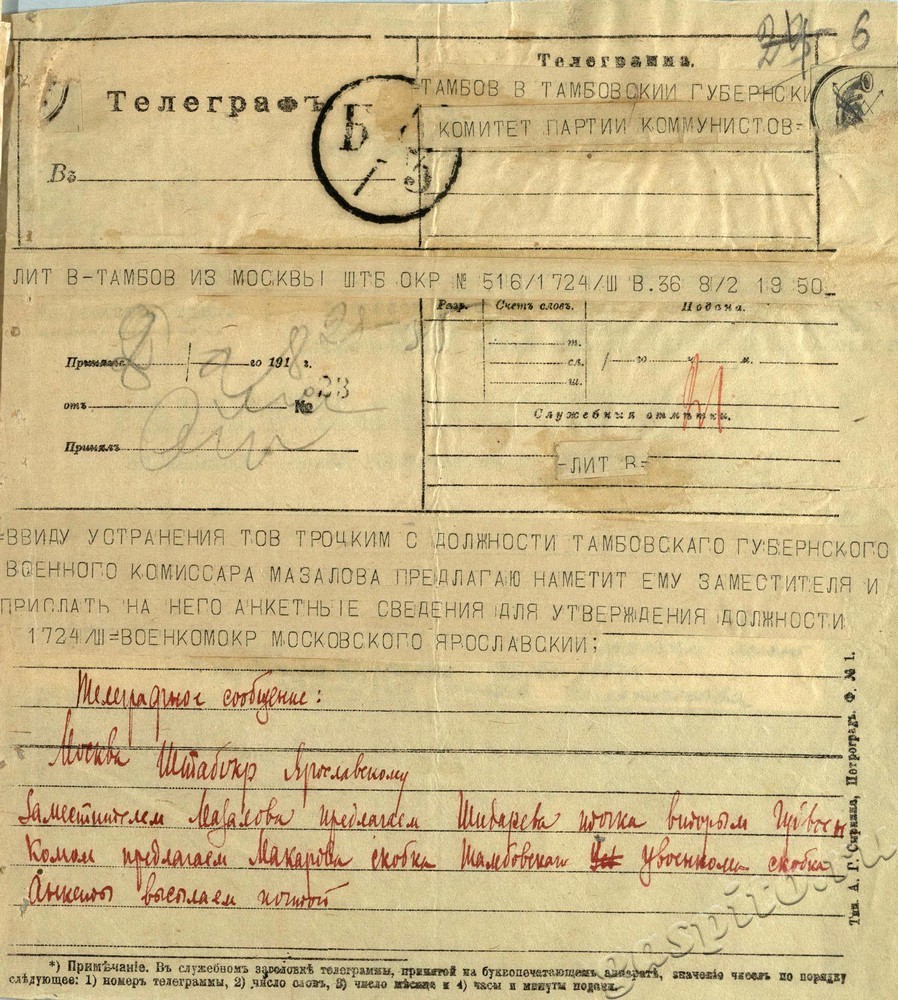 6
Телеграмма.
Телеграфъ
=ТАМБОВ В ТАМБОВСКИИ ГУБЕРНСКИ
КОМИТЕТ ПАРТИИ КОММУНИСТОВ=
Въ
ЛИТ В-ТАМБОВ ИЗ МОСКВЫ ШТБ ОКР № 516/1724/Ш В.36 8/2 19 50_
Разр. Счетъ словъ. Подана.
т.
сл.
ш.
го ч. м.
Принята го 191 г.
отъ № 823
Служебныя отмѣтки.
Принялъ
-ЛИТ В=
=ВВИДУ УСТРАНЕНИЯ ТОВ ТРОЦКИМ С ДОЛЖНОСТИ ТАМБОВСКАГО ГУБЕРНСКОГО
ВОЕННОГО КОМИССАРА МАЗАЛОВА ПРЕДЛАГАЮ НАМЕТИТ ЕМУ ЗАМЕСТИТЕЛЯ И
ПРИСЛАТЬ НА НЕГО АНКЕТНЫЕ СВЕДЕНИЯ ДЛЯ УТВЕРЖДЕНИЯ ДОЛЖНОСТИ
1724/Ш=ВОЕНКОМОКР МОСКОВСКОГО ЯРОСЛАВСКИЙ;
Телеграфное сообщение:
Москва Штабокр Ярославскому
Заместителем Мазалова предлагаем Шибарева точка вторым Губвоен
Комом предлагаем Макарова скобка Тамбовского увоенкома скобка
Анкеты высылаем почтой
Тип. А. Г. Сыркина, Петроградъ. Ф. № 1.
*) Примѣчаніе. Въ служебномъ заголовкѣ телеграммы, принятой на буквопечатающемъ аппаратѣ, значеніе чиселъ по порядку
слѣдующее: 1) номеръ телеграммы, 2) число словъ, 3) число мѣсяца и 4) часы и минуты подачи.